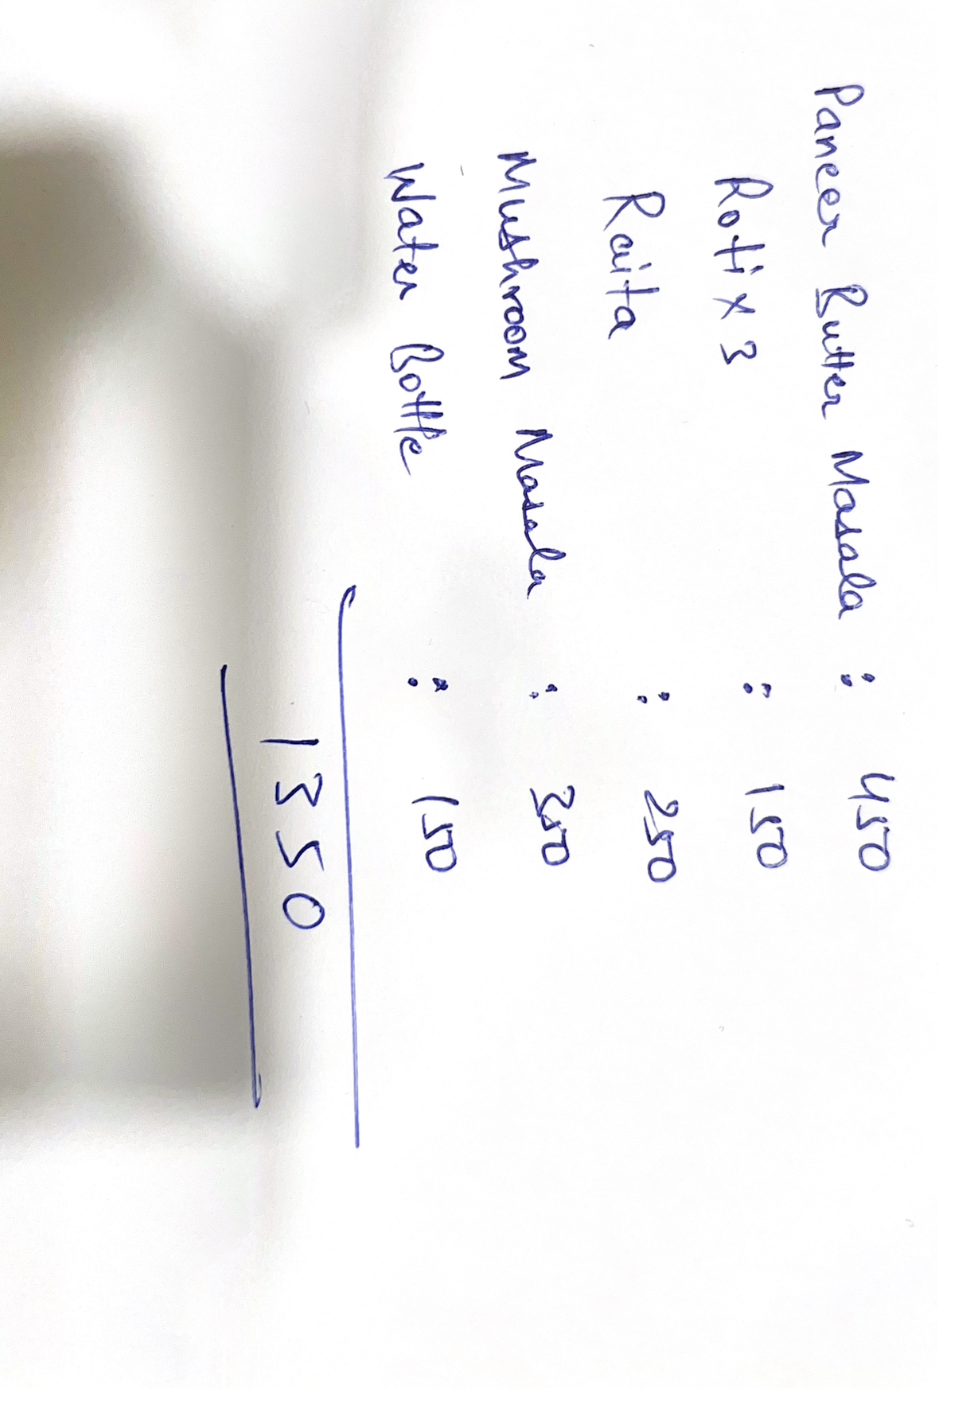 Paneer Butter Masala : 450
Roti x 3 : 150
Raita : 250
Mushroom Masala : 350
Water Bottle : 150
1350